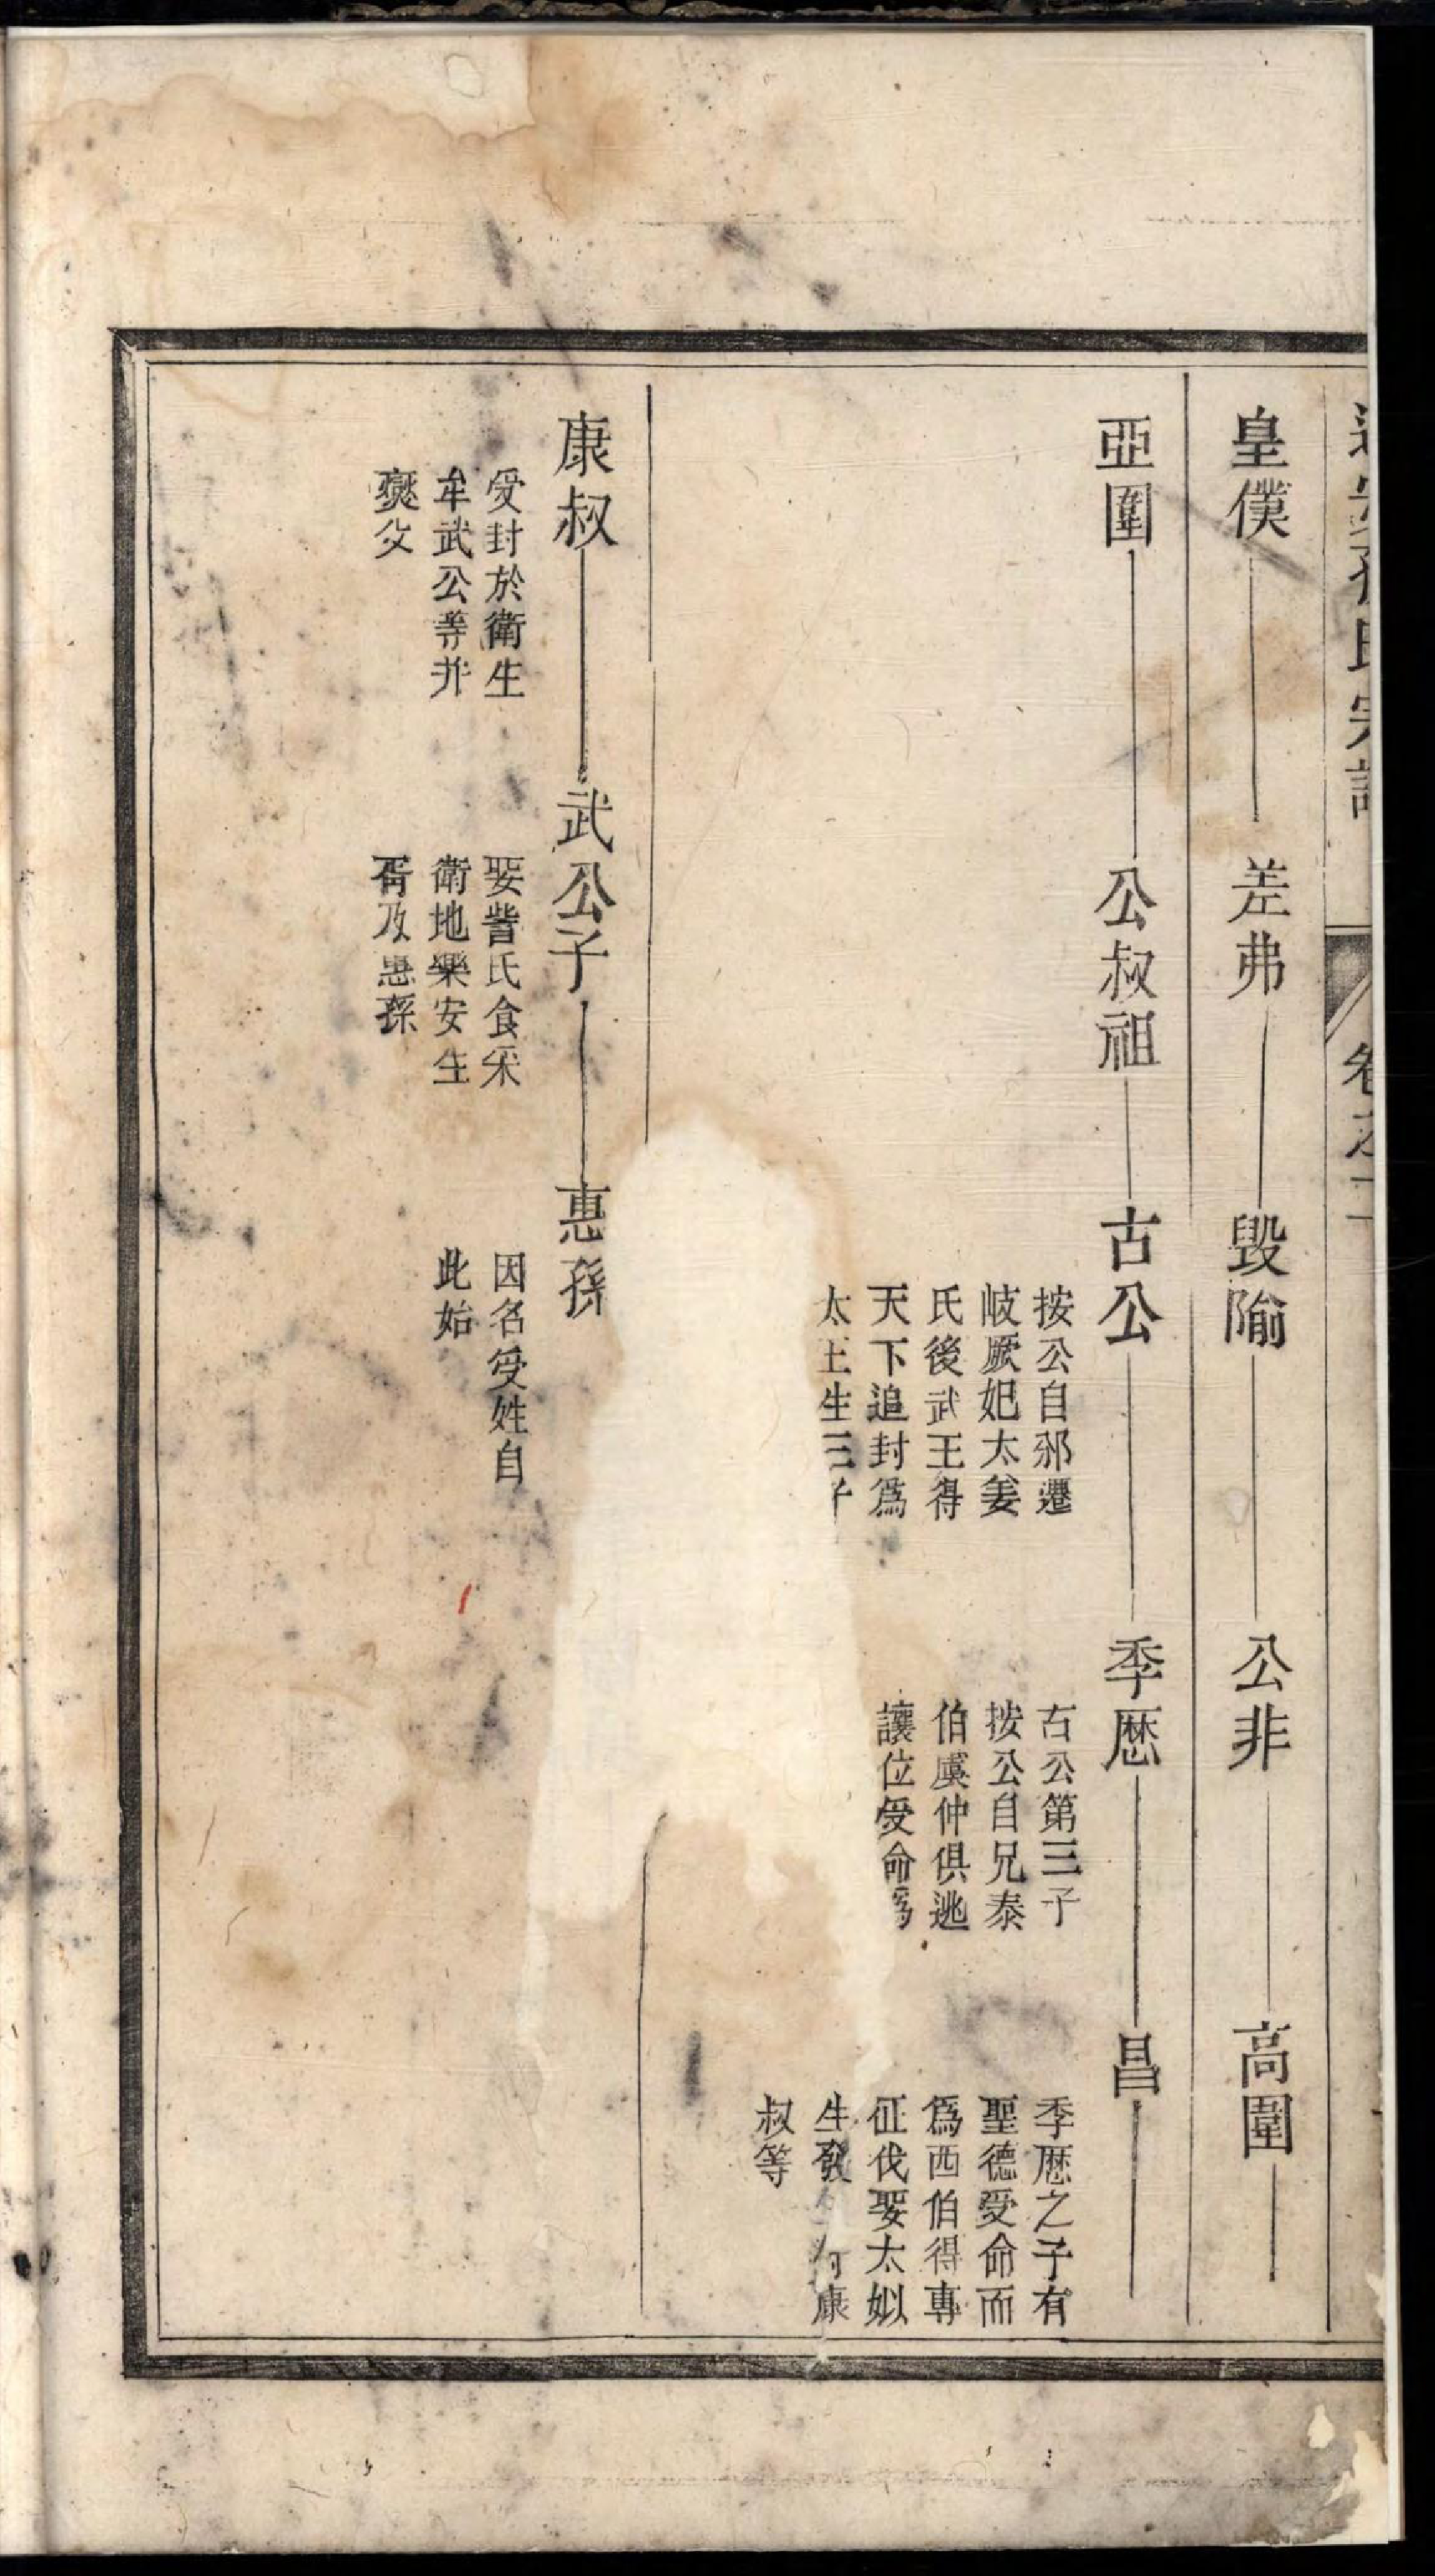 氏宗譜 卷之一
皇僕 差弗 毁隃 公非 高圉
亞圉 公叔祖 古公 季歷 昌
按公自邠遷
岐厥妃太姜
氏後武王得
天下追封爲
太王生三子
古公第三子
按公自兄泰
伯虞仲俱逃
讓位受命爲
季歷之子有
聖德受命而
爲西伯得專
征伐娶太姒
生發 康
叔等
康叔 武公子 惠孫
受封於衛生
牟武公等并
燮父
娶訾氏食采
衛地樂安生
胥及惠孫
因名受姓自
此始